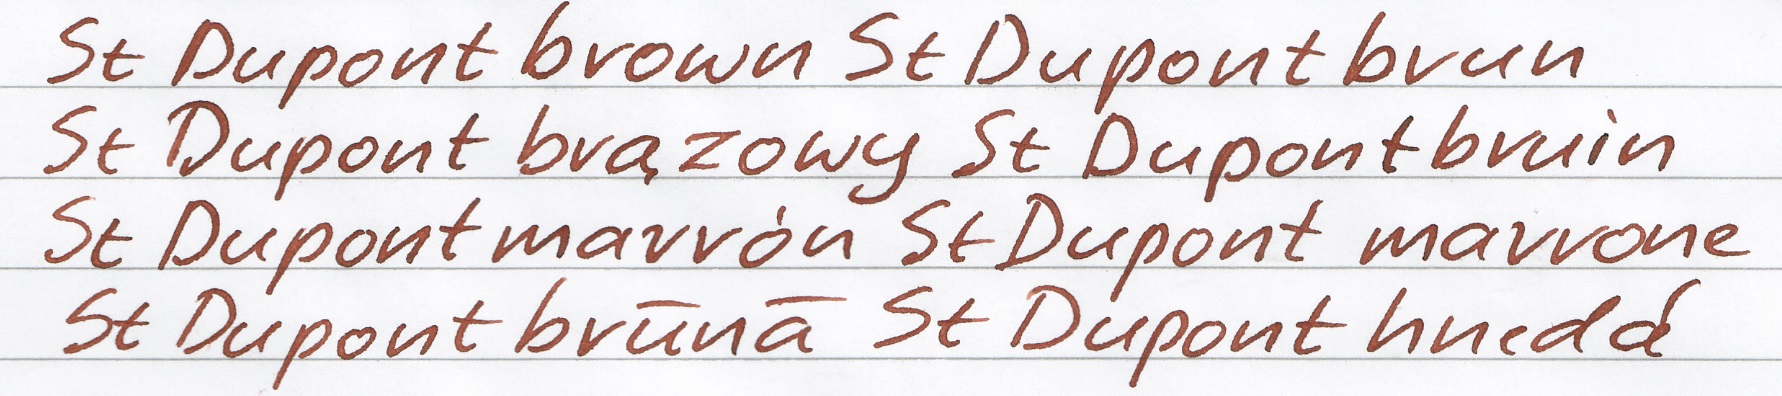 St Dupont brown St Dupont brun
St Dupont brązowy St Dupont bruin
St Dupont marrón St Dupont marrone
St Dupont brūnā St Dupont hnedá